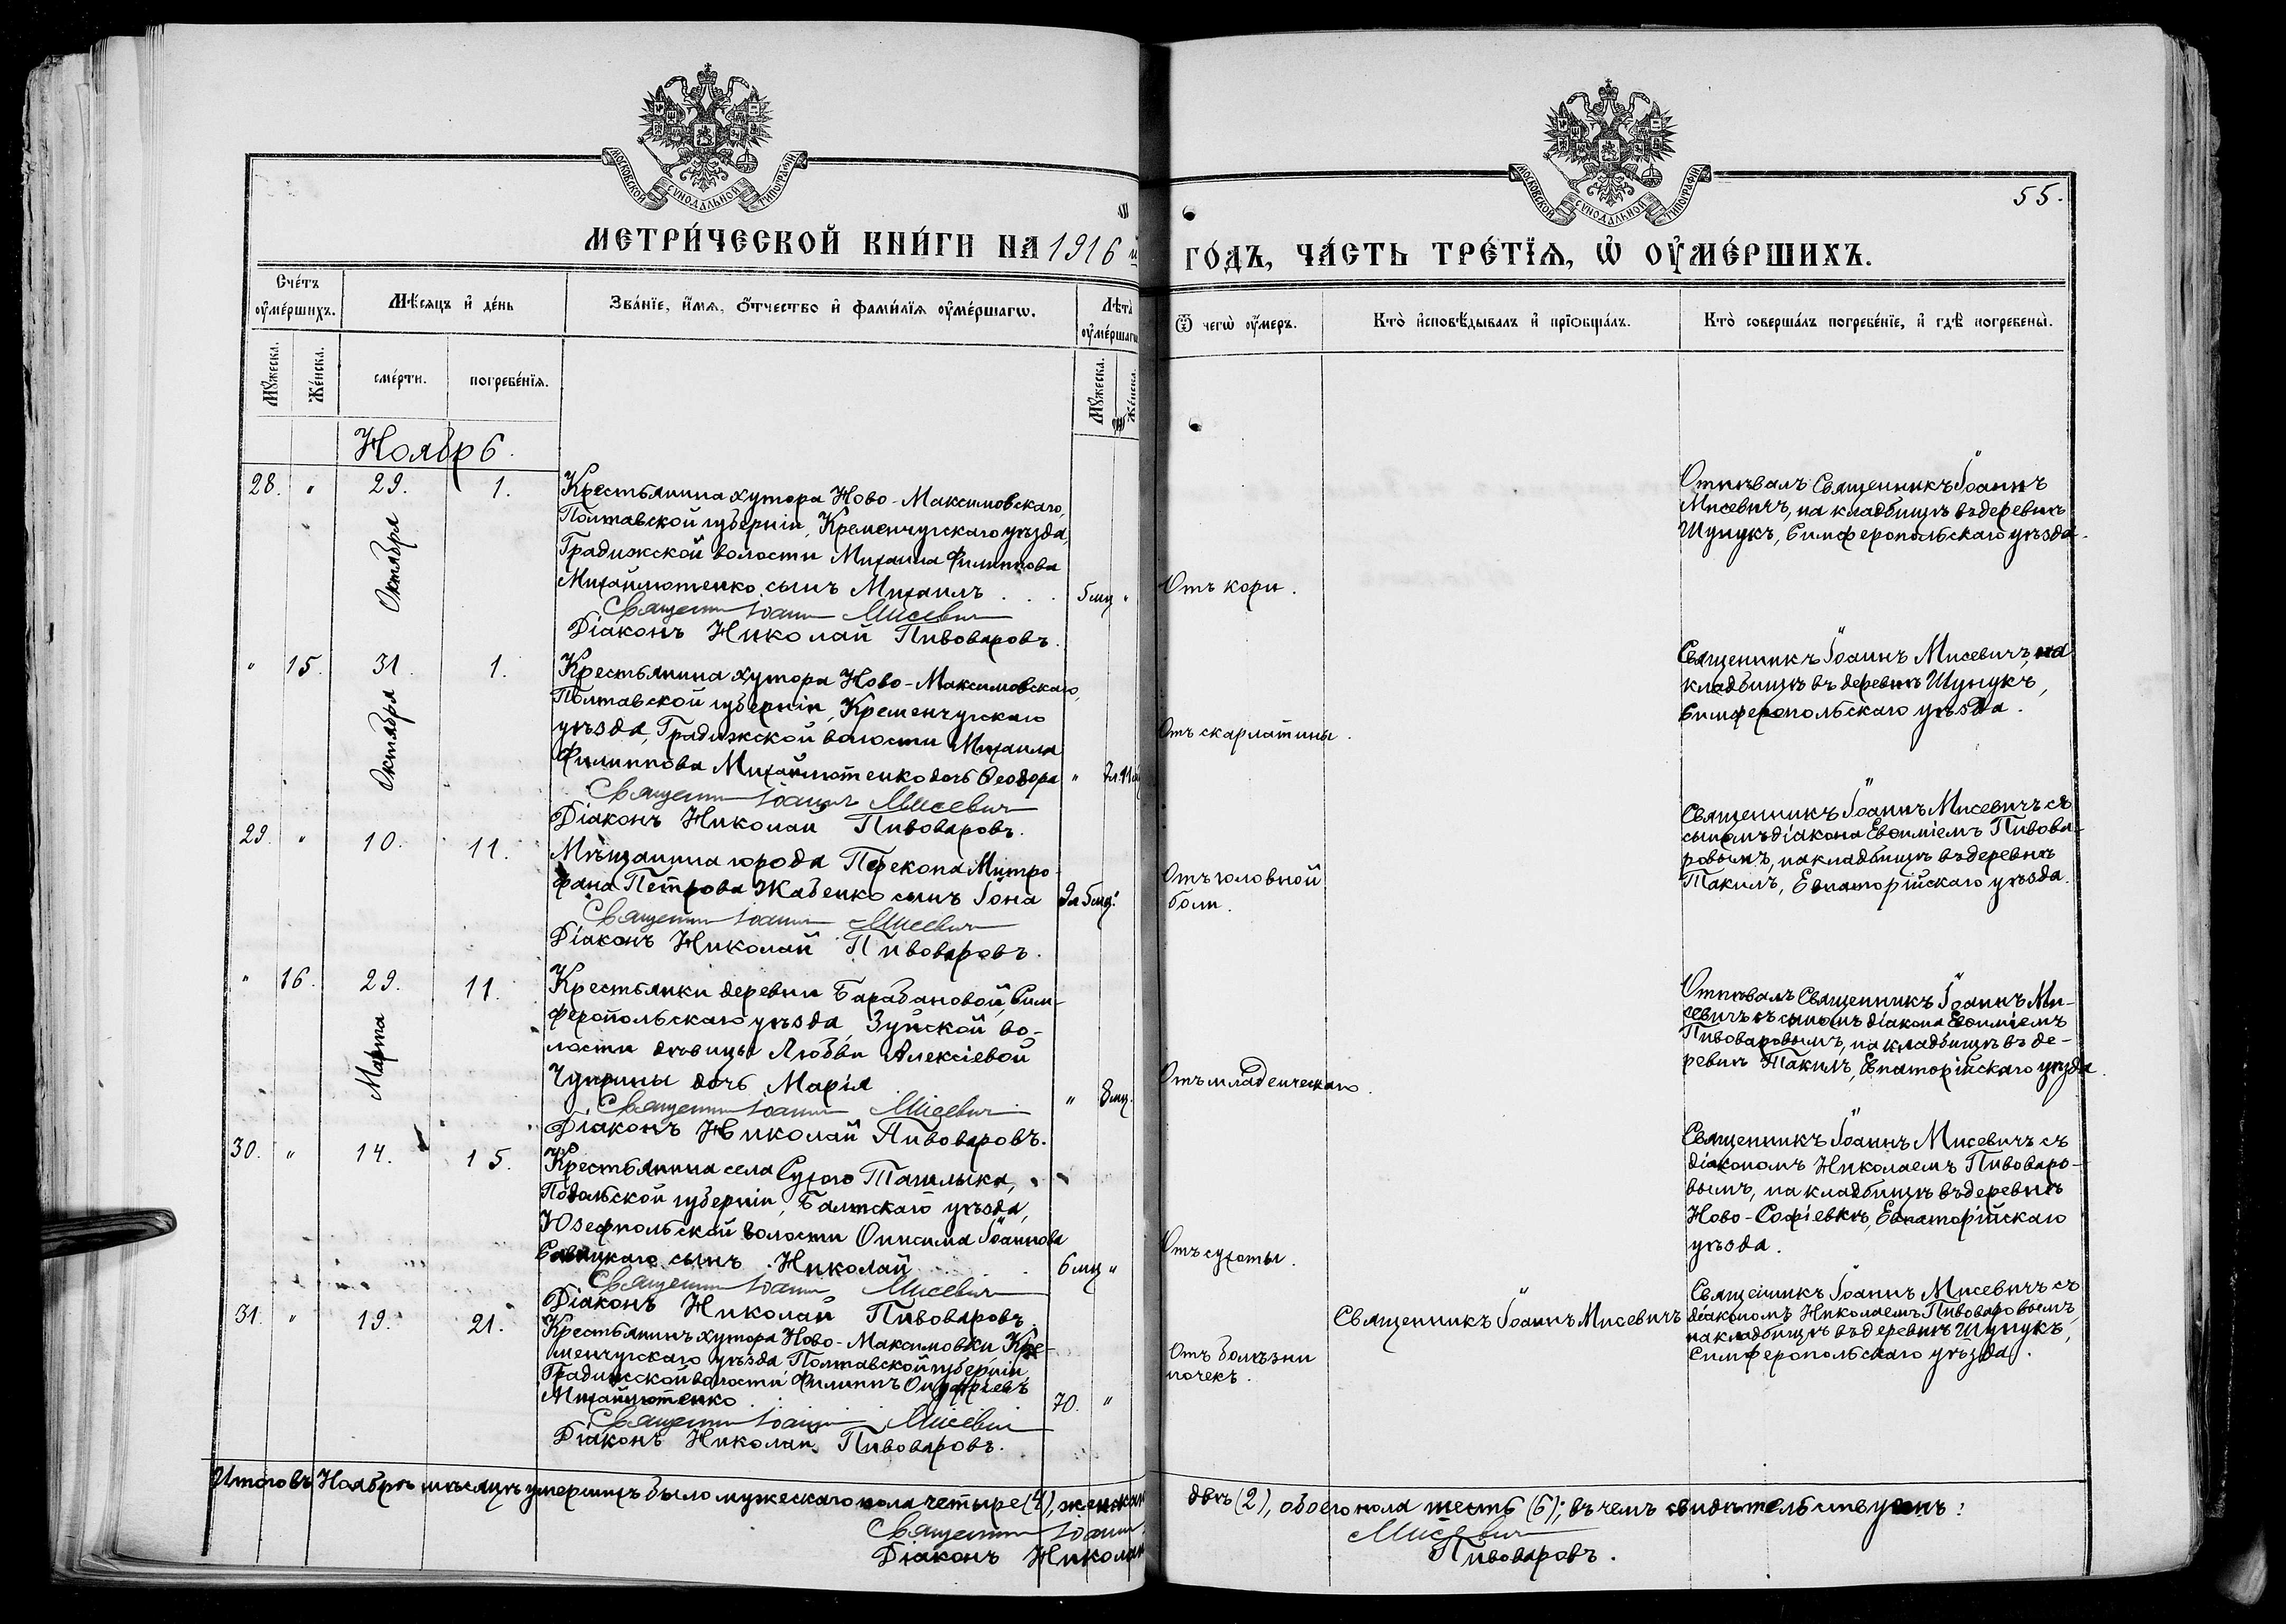 МОСКОВСКОЙ СУНОДАЛЬНОЙ ТИПОГРАФІИ
МОСКОВСКОЙ СУНОДАЛЬНОЙ ТИПОГРАФІИ
55.
МЕТРИ́ЧЕСКОЙ КНИ́ГИ НА 1916 й
ГО́ДЪ, ЧА́СТЬ ТРЕ́ТЇѦ, Ѡ҆ ОУ҆МЕ́РШИХЪ.
Сче́тъ оу҆ме́ршихъ.
Мѣ́сяцъ и҆ де́нь
Зва́нїе, и҆́мѧ, о҆́тчество и҆ фами́лїѧ оу҆ме́ршагѡ.
Лѣ́та оу҆ме́ршагѡ
Ѿ чегѡ̀ оу҆́меръ.
Кто̀ и҆сповѣ́дывалъ и҆ прїѻбща́лъ.
Кто̀ соверша́лъ погребе́нїе, и҆ гдѣ̀ погребены̀.
Мꙋ́жеска.
Же́нска.
сме́рти.
погребе́нїѧ.
Мꙋ́жеска.
Же́нска.
Ноябрь.
28. " 29. Октября 1.
Крестьянина хутора Ново-Максимовскаго,
Полтавской губерніи, Кременчугскаго уѣзда,
Градижской волости Михаила Филиппова
Михайлютенко сынъ Михаилъ . . . 5 мц "
Священникъ Іоаннъ Мисевичъ
Діаконъ Николай Пивоваровъ.
Отъ кори.
Отпѣвалъ Священникъ Іоаннъ
Мисевичъ, на кладбищѣ въ деревнѣ
Шунукъ, Симферопольскаго уѣзда.
" 15. 31. Октября 1.
Крестьянина хутора Ново-Максимовскаго,
Полтавской губерніи, Кременчугскаго
уѣзда, Градижской волости Михаила
Филиппова Михайлютенко дочь Ѳеодора "
Священникъ Іоаннъ Мисевичъ
Діаконъ Николай Пивоваровъ.
Отъ скарлатины.
Священникъ Іоаннъ Мисевичъ, на
кладбищѣ въ деревнѣ Шунукъ,
Симферопольскаго уѣзда.
29. " 10. 11.
Мѣщанина города Перекопа Митро-
фана Петрова Жабенко сынъ Іона
Священникъ Іоаннъ Мисевичъ
Діаконъ Николай Пивоваровъ.
Отъ головной
боли.
Священникъ Іоаннъ Мисевичъ съ
сыномъ діакона Евѳиміемъ Пивова-
ровымъ, на кладбищѣ въ деревнѣ
Такилъ, Евпаторійскаго уѣзда.
" 16. 29. Марта 11.
Крестьянки деревни Барабановой, Сим-
феропольскаго уѣзда, Зуйской во-
лости дѣвицы Любви Алексіевой
Чуприны дочь Марія " 8 мц.
Священникъ Іоаннъ Мисевичъ
Діаконъ Николай Пивоваровъ.
Отъ младенческаго.
Отпѣвалъ Священникъ Іоаннъ Ми-
севичъ съ сыномъ діакона Евѳиміемъ
Пивоваровымъ, на кладбищѣ въ де-
ревнѣ Такилъ, Евпаторійскаго уѣзда.
30. " 14. 15.
Крестьянина села Сухого Ташлыка,
Подольской губерніи, Балтскаго уѣзда,
Юзефпольской волости Онисима Іоаннова
Савицкаго сынъ Николай 6 мц "
Священникъ Іоаннъ Мисевичъ
Діаконъ Николай Пивоваровъ.
Отъ сухоты.
Священникъ Іоаннъ Мисевичъ съ
діакономъ Николаемъ Пивоваро-
вымъ, на кладбищѣ въ деревнѣ
Ново-Софіевкѣ, Евпаторійскаго
уѣзда.
31. " 19. 21.
Крестьянинъ хутора Ново-Максимовки Кре-
менчугскаго уѣзда Полтавской губерніи,
Градижской волости Филиппъ Онуфріевъ
Михайлютенко 70. "
Священникъ Іоаннъ Мисевичъ
Діаконъ Николай Пивоваровъ.
Отъ болѣзни
почекъ.
Священникъ Іоаннъ Мисевичъ
Священникъ Іоаннъ Мисевичъ съ
діакономъ Николаемъ Пивоваровымъ,
на кладбищѣ въ деревнѣ Шунукъ,
Симферопольскаго уѣзда.
Итого въ Ноябрѣ мѣсяцѣ умершихъ было мужескаго пола четыре (4), женскаго
двѣ (2), обоего пола шесть (6); въ чемъ свидѣтельствуемъ:
Священникъ Іоаннъ Мисевичъ
Діаконъ Николай Пивоваровъ.